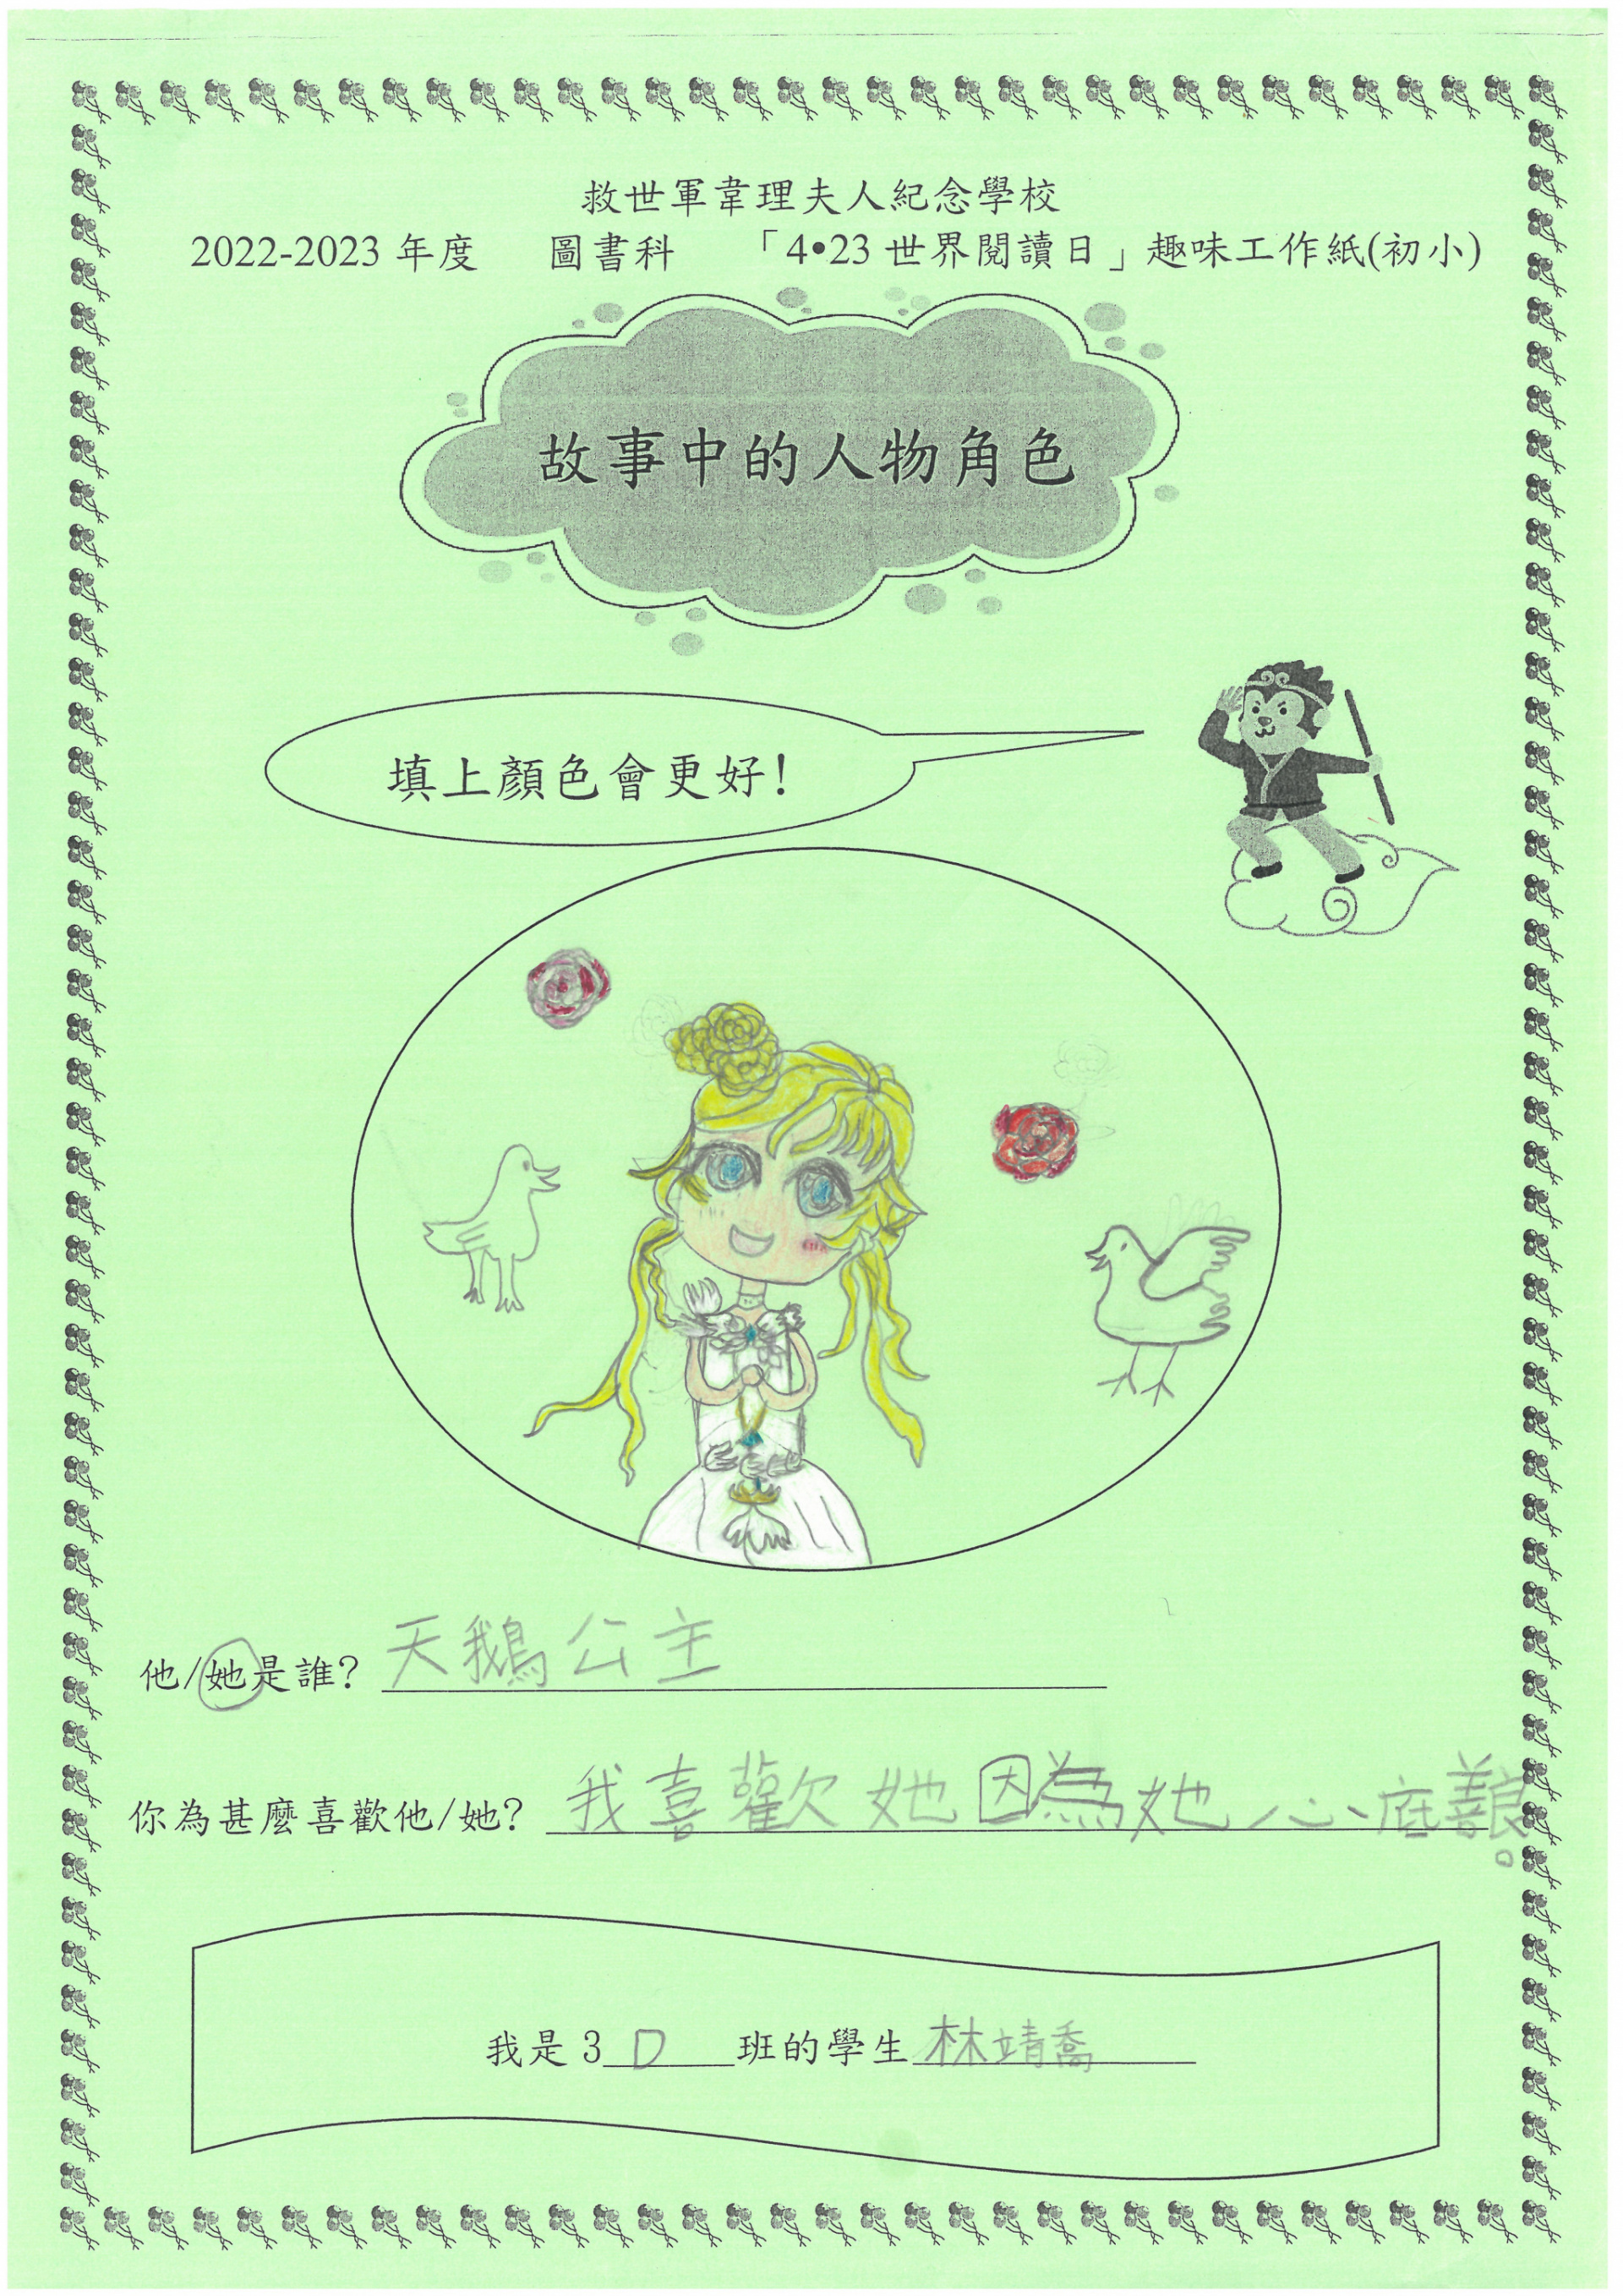 救世軍韋理夫人紀念學校
2022-2023 年度 圖書科 「4•23 世界閱讀日」趣味工作紙(初小)
故事中的人物角色
填上顏色會更好!
他/她是誰? 天鵝公主
你為甚麼喜歡他/她? 我喜歡她因為她心底善良。
我是 3 D 班的學生 林靖喬